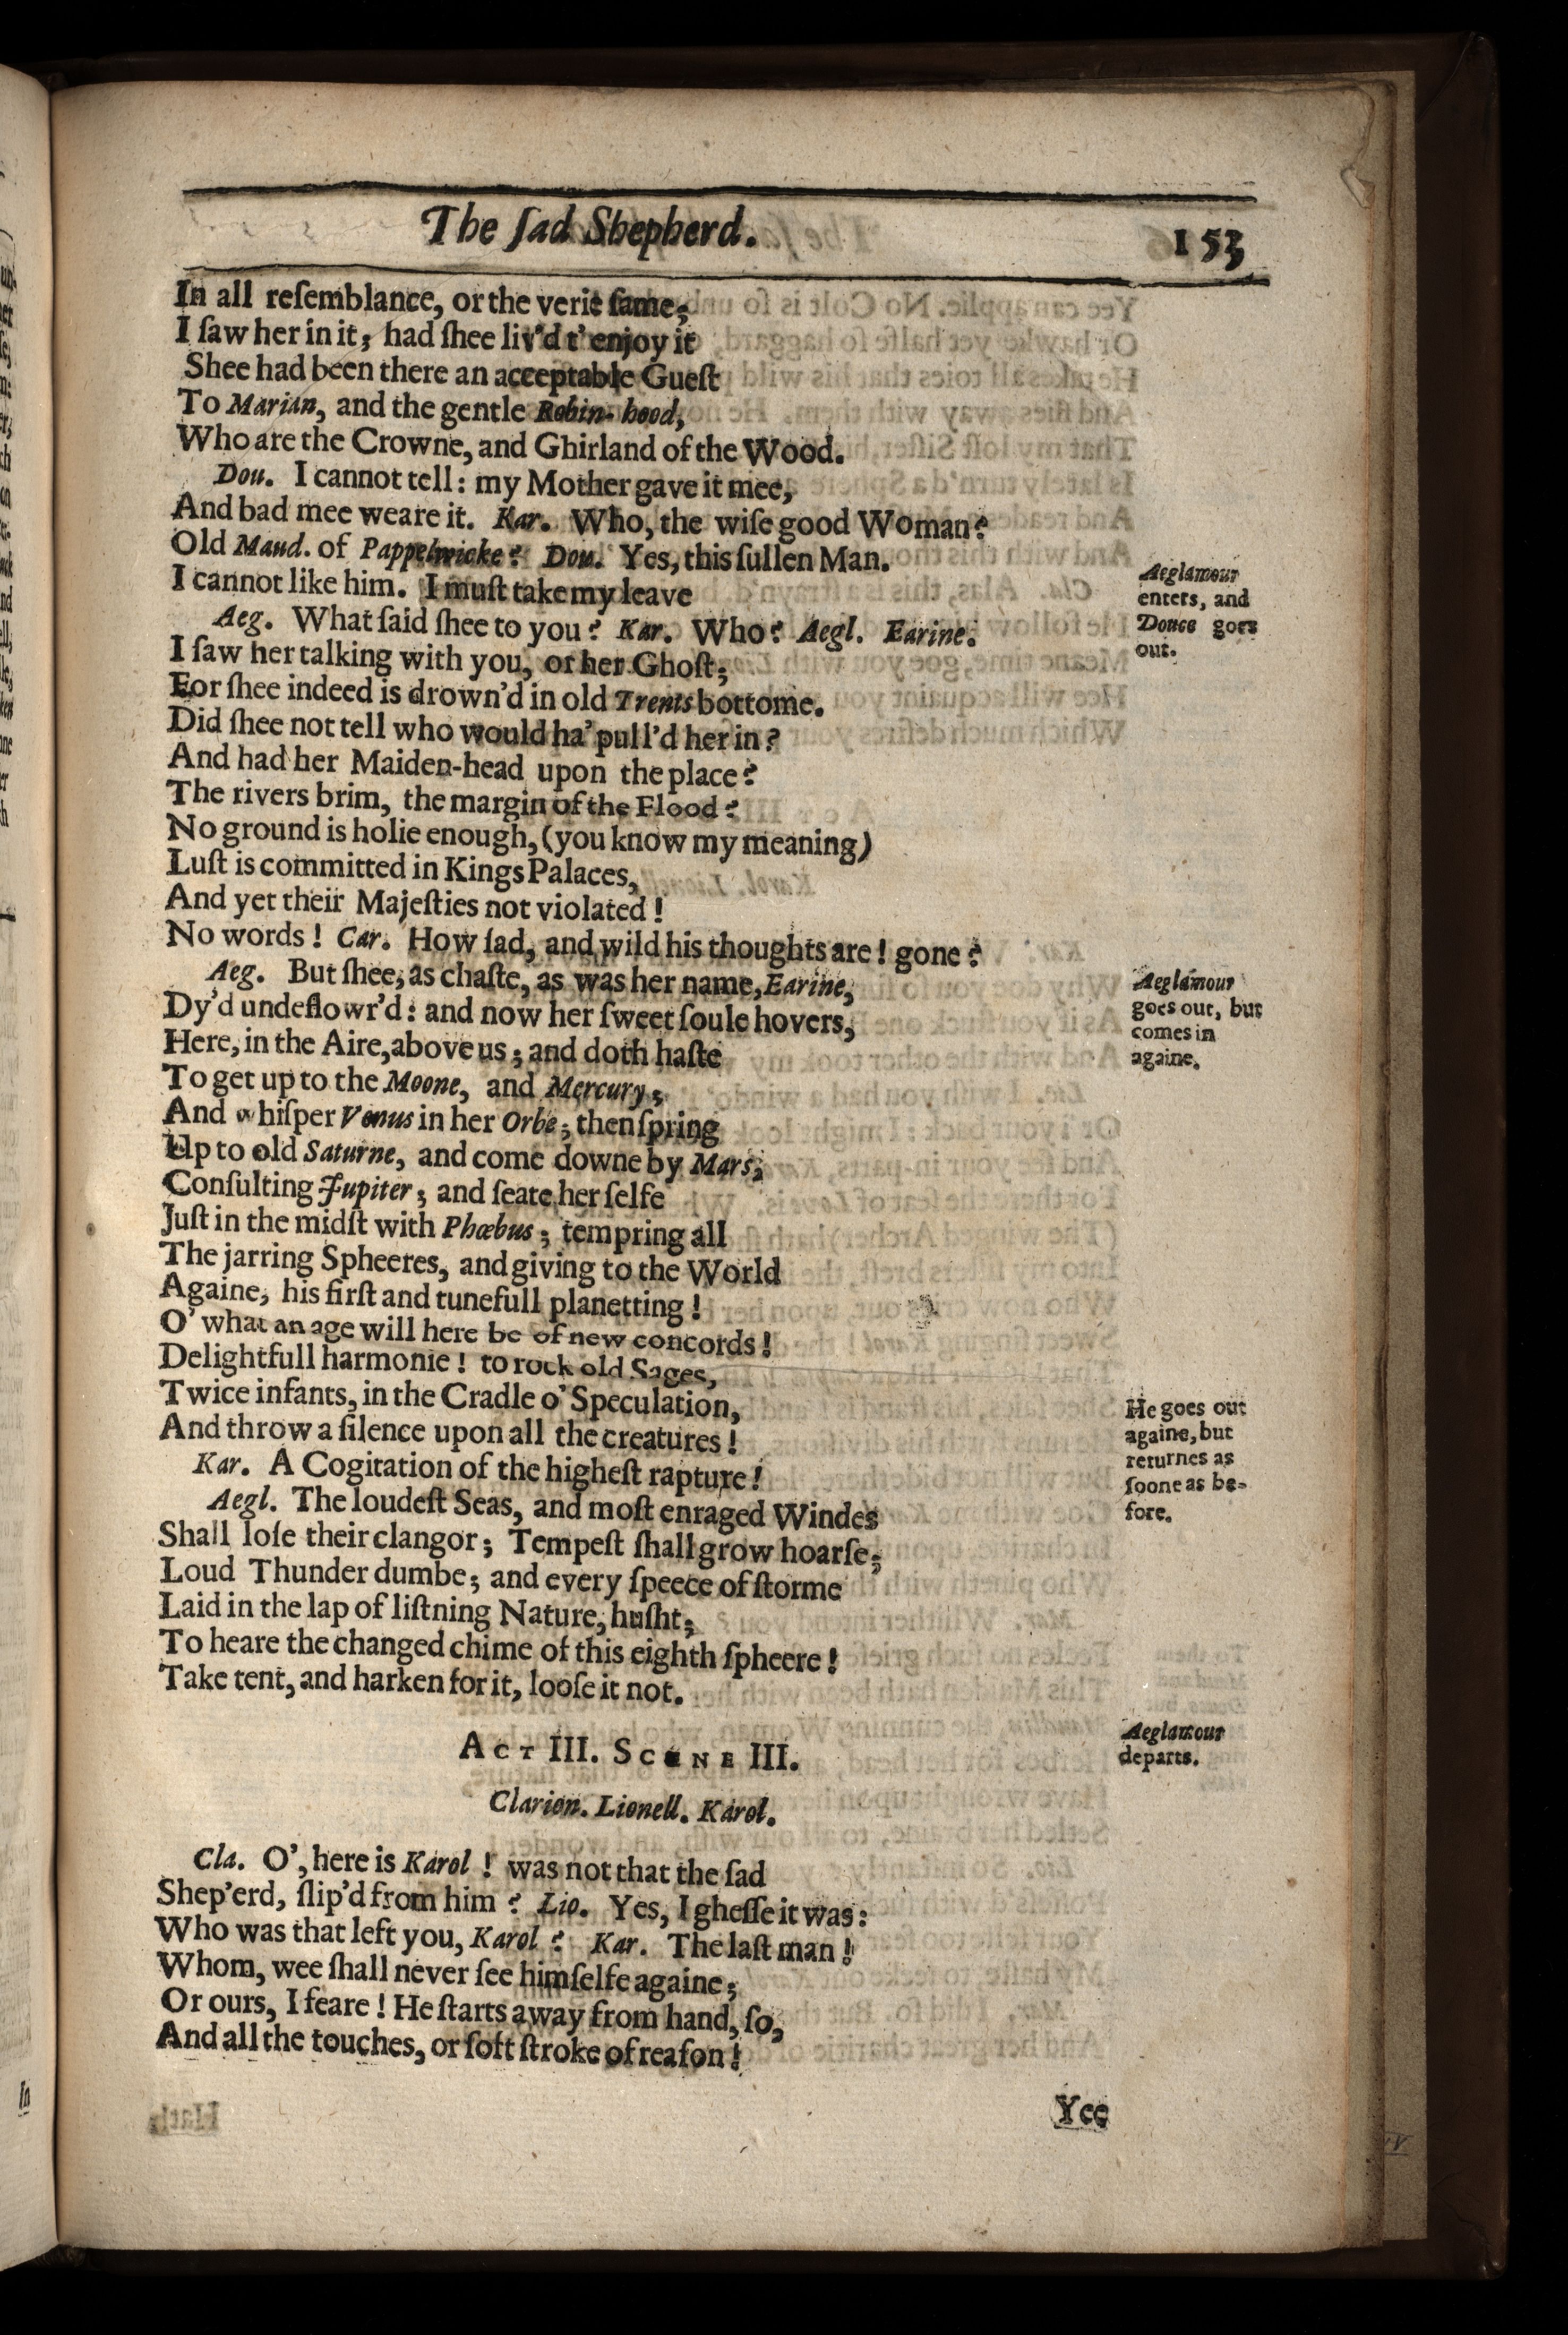 The ſad Shepherd. 153
In all reſemblance, or the verie ſame;
I ſaw her in it; had ſhee liv'd t' enjoy it
Shee had been there an acceptable Gueſt
To Marian, and the gentle Robin-hood,
Who are the Crowne, and Ghirland of the Wood.
Dou. I cannot tell: my Mother gave it mee,
And bad mee weare it. Kar. Who, the wiſe good Woman?
Old Maud. of Pappelwicke? Dou. Yes, this ſullen Man.
I cannot like him. I muſt take my leave
Aeglamour
enters, and
Douce goes
out.
Aeg. What ſaid ſhee to you? Kar. Who? Aegl. Earine.
I ſaw her talking with you, or her Ghoſt;
For ſhee indeed is drown'd in old Trents bottome.
Did ſhee not tell who would ha' pull'd her in?
And had her Maiden-head upon the place?
The rivers brim, the margin of the Flood?
No ground is holie enough, (you know my meaning)
Luſt is committed in Kings Palaces,
And yet their Majeſties not violated!
No words! Car. How ſad, and wild his thoughts are! gone?
Aeglamour
goes out, but
comes in
againe.
Aeg. But ſhee, as chaſte, as was her name, Earine,
Dy'd undeflowr'd: and now her ſweet ſoule hovers,
Here, in the Aire, above us; and doth haſte
To get up to the Moone, and Mercury;
And whiſper Venus in her Orbe; then ſpring
Up to old Saturne, and come downe by Mars,
Conſulting Jupiter; and ſeate her ſelfe
Juſt in the midſt with Phœbus; tempring all
The jarring Spheeres, and giving to the World
Againe, his firſt and tunefull planetting!
O' what an age will here be of new concords!
Delightfull harmonie! to rock old Sages,
Twice infants, in the Cradle o' Speculation,
And throw a ſilence upon all the creatures!
He goes out
againe, but
returnes as
ſoone as be-
fore.
Kar. A Cogitation of the higheſt rapture!
Aegl. The loudeſt Seas, and moſt enraged Windes
Shall loſe their clangor; Tempeſt ſhall grow hoarſe;
Loud Thunder dumbe; and every ſpeece of ſtorme
Laid in the lap of liſtning Nature, huſht;
To heare the changed chime of this eighth ſpheere!
Take tent, and harken for it, looſe it not.
Aeglamour
departs.
Act III. Scene III.
Clarion. Lionell. Karol.
Cla. O', here is Karol! was not that the ſad
Shep'erd, ſlip'd from him? Lio. Yes, I gheſſe it was:
Who was that left you, Karol? Kar. The laſt man!
Whom, wee ſhall never ſee himſelfe againe;
Or ours, I feare! He ſtarts away from hand, ſo,
And all the touches, or ſoft ſtroke of reaſon!
Yee